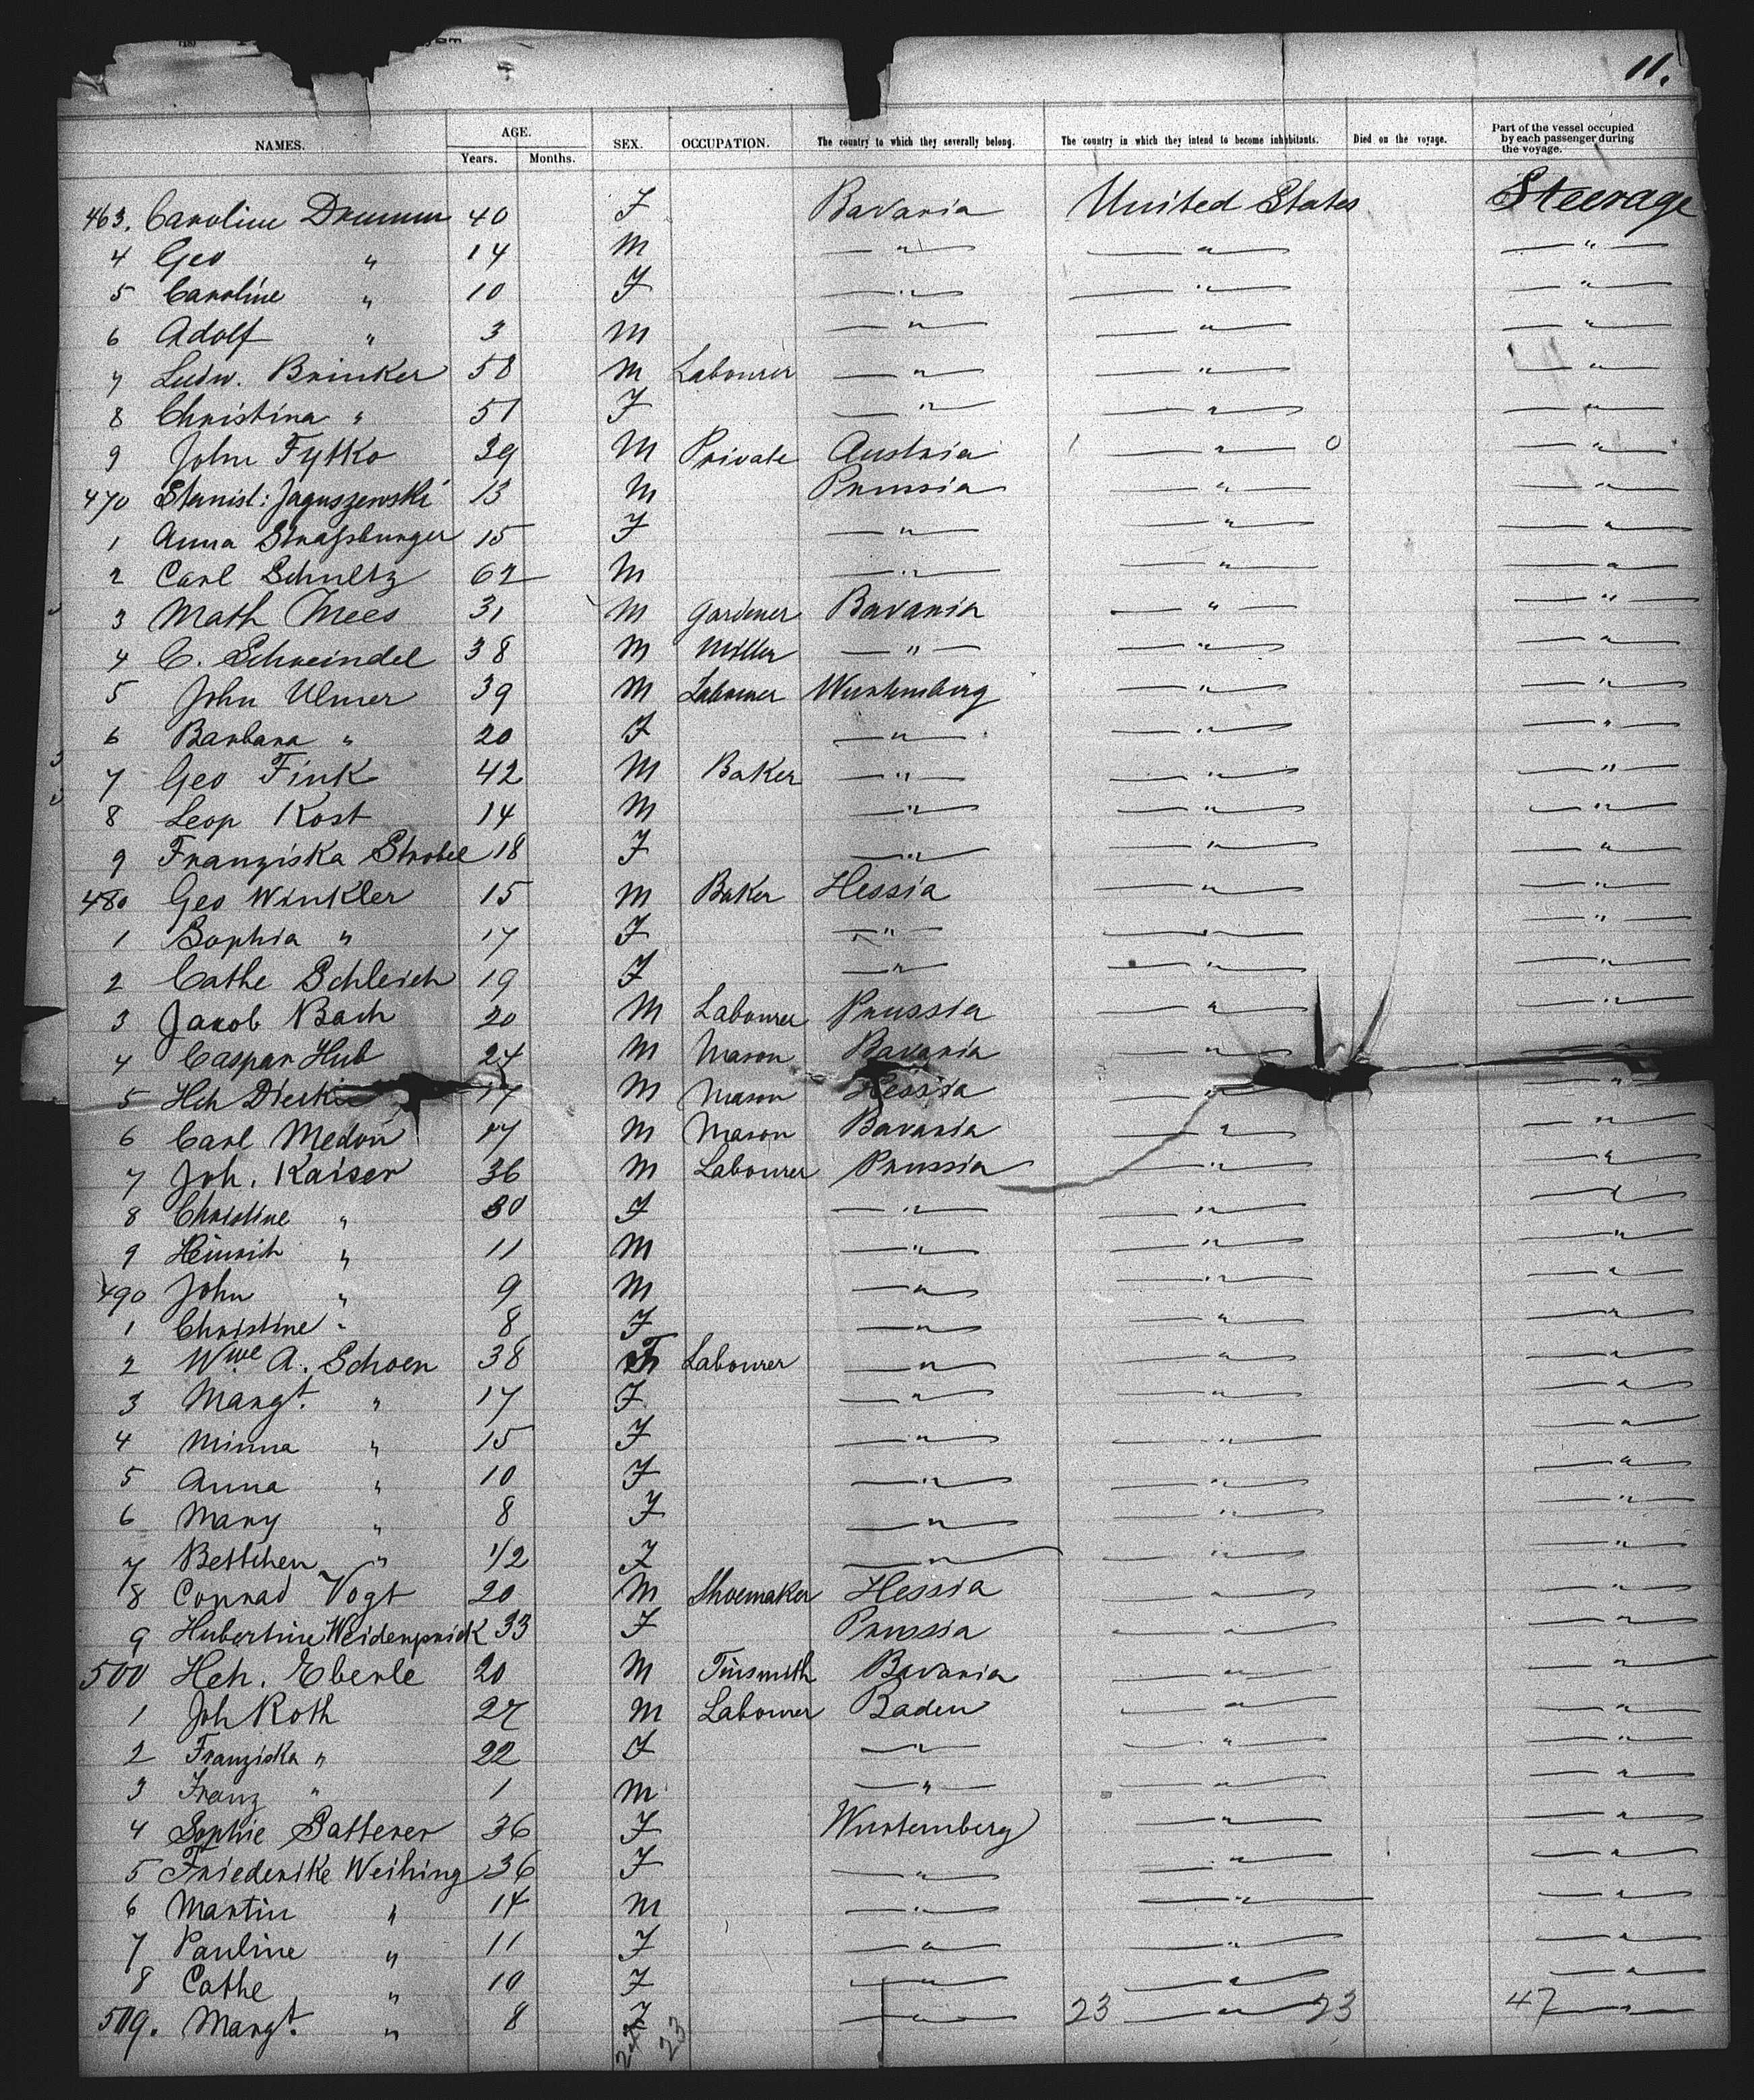 11.
NAMES. AGE. SEX. OCCUPATION. The country to which they severally belong. The country in which they intend to become inhabitants. Died on the voyage. Part of the vessel occupied by each passenger during the voyage.
Years. Months.
463. Caroline Drumm 40 F Bavaria United States Steerage
4 Geo " 14 M " " "
5 Caroline " 10 F " " "
6 Adolf " 3 M " " "
7 Ludw. Brinker 58 M Labourer " " "
8 Christina " 51 F " " "
9 John Fytko 39 M Private Austria " 0 "
470 Stanisl: Jaguszewski 13 M Prussia " "
1 Anna Straßburger 15 F " " "
2 Carl Schultz 62 M " " "
3 Math Mees 31 M Gardener Bavaria " "
4 C. Schweindel 38 M Miller " " "
5 John Ulmer 39 M Labourer Wurtemberg " "
6 Barbara " 20 F " " "
7 Geo Fink 42 M Baker " " "
8 Leop Kost 14 M " " "
9 Franziska Strobel 18 F " " "
480 Geo Winkler 15 M Baker Hessia " "
1 Sophia " 17 F " " "
2 Cathe Schleich 19 F " " "
3 Jacob Bach 20 M Labourer Prussia " "
4 Caspar Hub 24 M Mason Bavaria " "
5 Hch 17 M Mason Hessia " "
6 Carl Medon 17 M Mason Bavaria " "
7 Joh. Kaiser 36 M Labourer Prussia " "
8 Christine " 30 F " " "
9 Heinrich " 11 M " " "
490 John " 9 M " " "
1 Christine " 8 F " " "
2 Wwe A. Schoen 38 F Labourer " " "
3 Margt. " 17 F " " "
4 Minna " 15 F " " "
5 Anna " 10 F " " "
6 Mary " 8 F " " "
7 Bettchen " 1/2 F " " "
8 Conrad Vogt 20 M Shoemaker Hessia " "
9 Hubertine 33 F Prussia " "
500 Hch. Eberle 20 M Tinsmith Bavaria " "
1 Joh Roth 27 M Labourer Baden " "
2 Franziska " 22 F " " "
3 Franz " 1 M " " "
4 Sophie Satterer 36 F Wurtemberg " "
5 Friederike Weihing 36 F " " "
6 Martin " 14 M " " "
7 Pauline " 11 F " " "
8 Cathe " 10 F " " "
509. Margt. " 8 F " 23 " 23 47 "
24 23